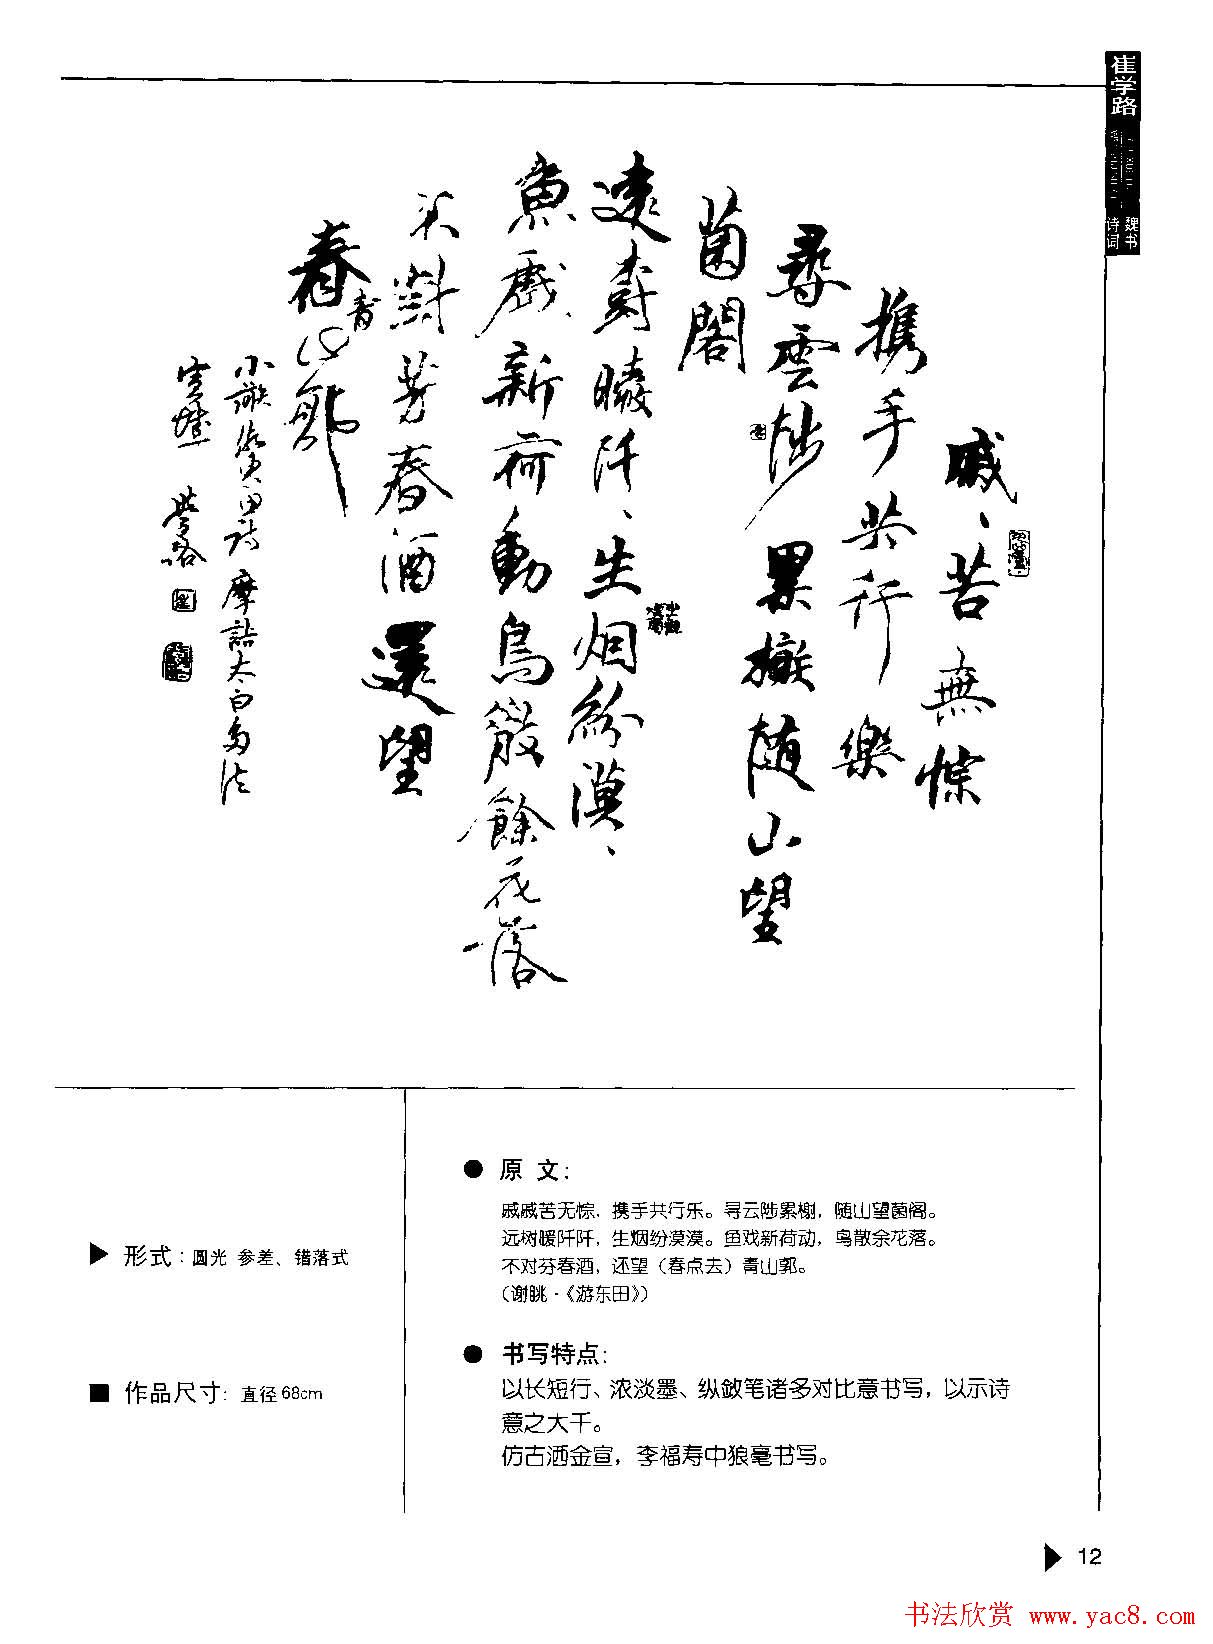 崔学路
魏书
诗词
戚、苦無悰
携手共行樂
尋雲陟累榭随山望
菌閣
遠樹曖阡、生烟紛漠、
魚戲新荷動鳥散餘花落
不對芳春酒還望
青
春山郭
小謝遊東田詩摩詰太白多法
學路
形式：圆光 参差、错落式
作品尺寸：直径68cm
原 文：
戚戚苦无悰，携手共行乐。寻云陟累榭，随山望菌阁。
远树暖阡阡，生烟纷漠漠。鱼戏新荷动，鸟散余花落。
不对芬春酒，还望（春点去）青山郭。
（谢眺·《游东田》）
书写特点：
以长短行、浓淡墨、纵敛笔诸多对比意书写，以示诗
意之大千。
仿古洒金宣，李福寿中狼毫书写。
12
书法欣赏 www.yac8.com